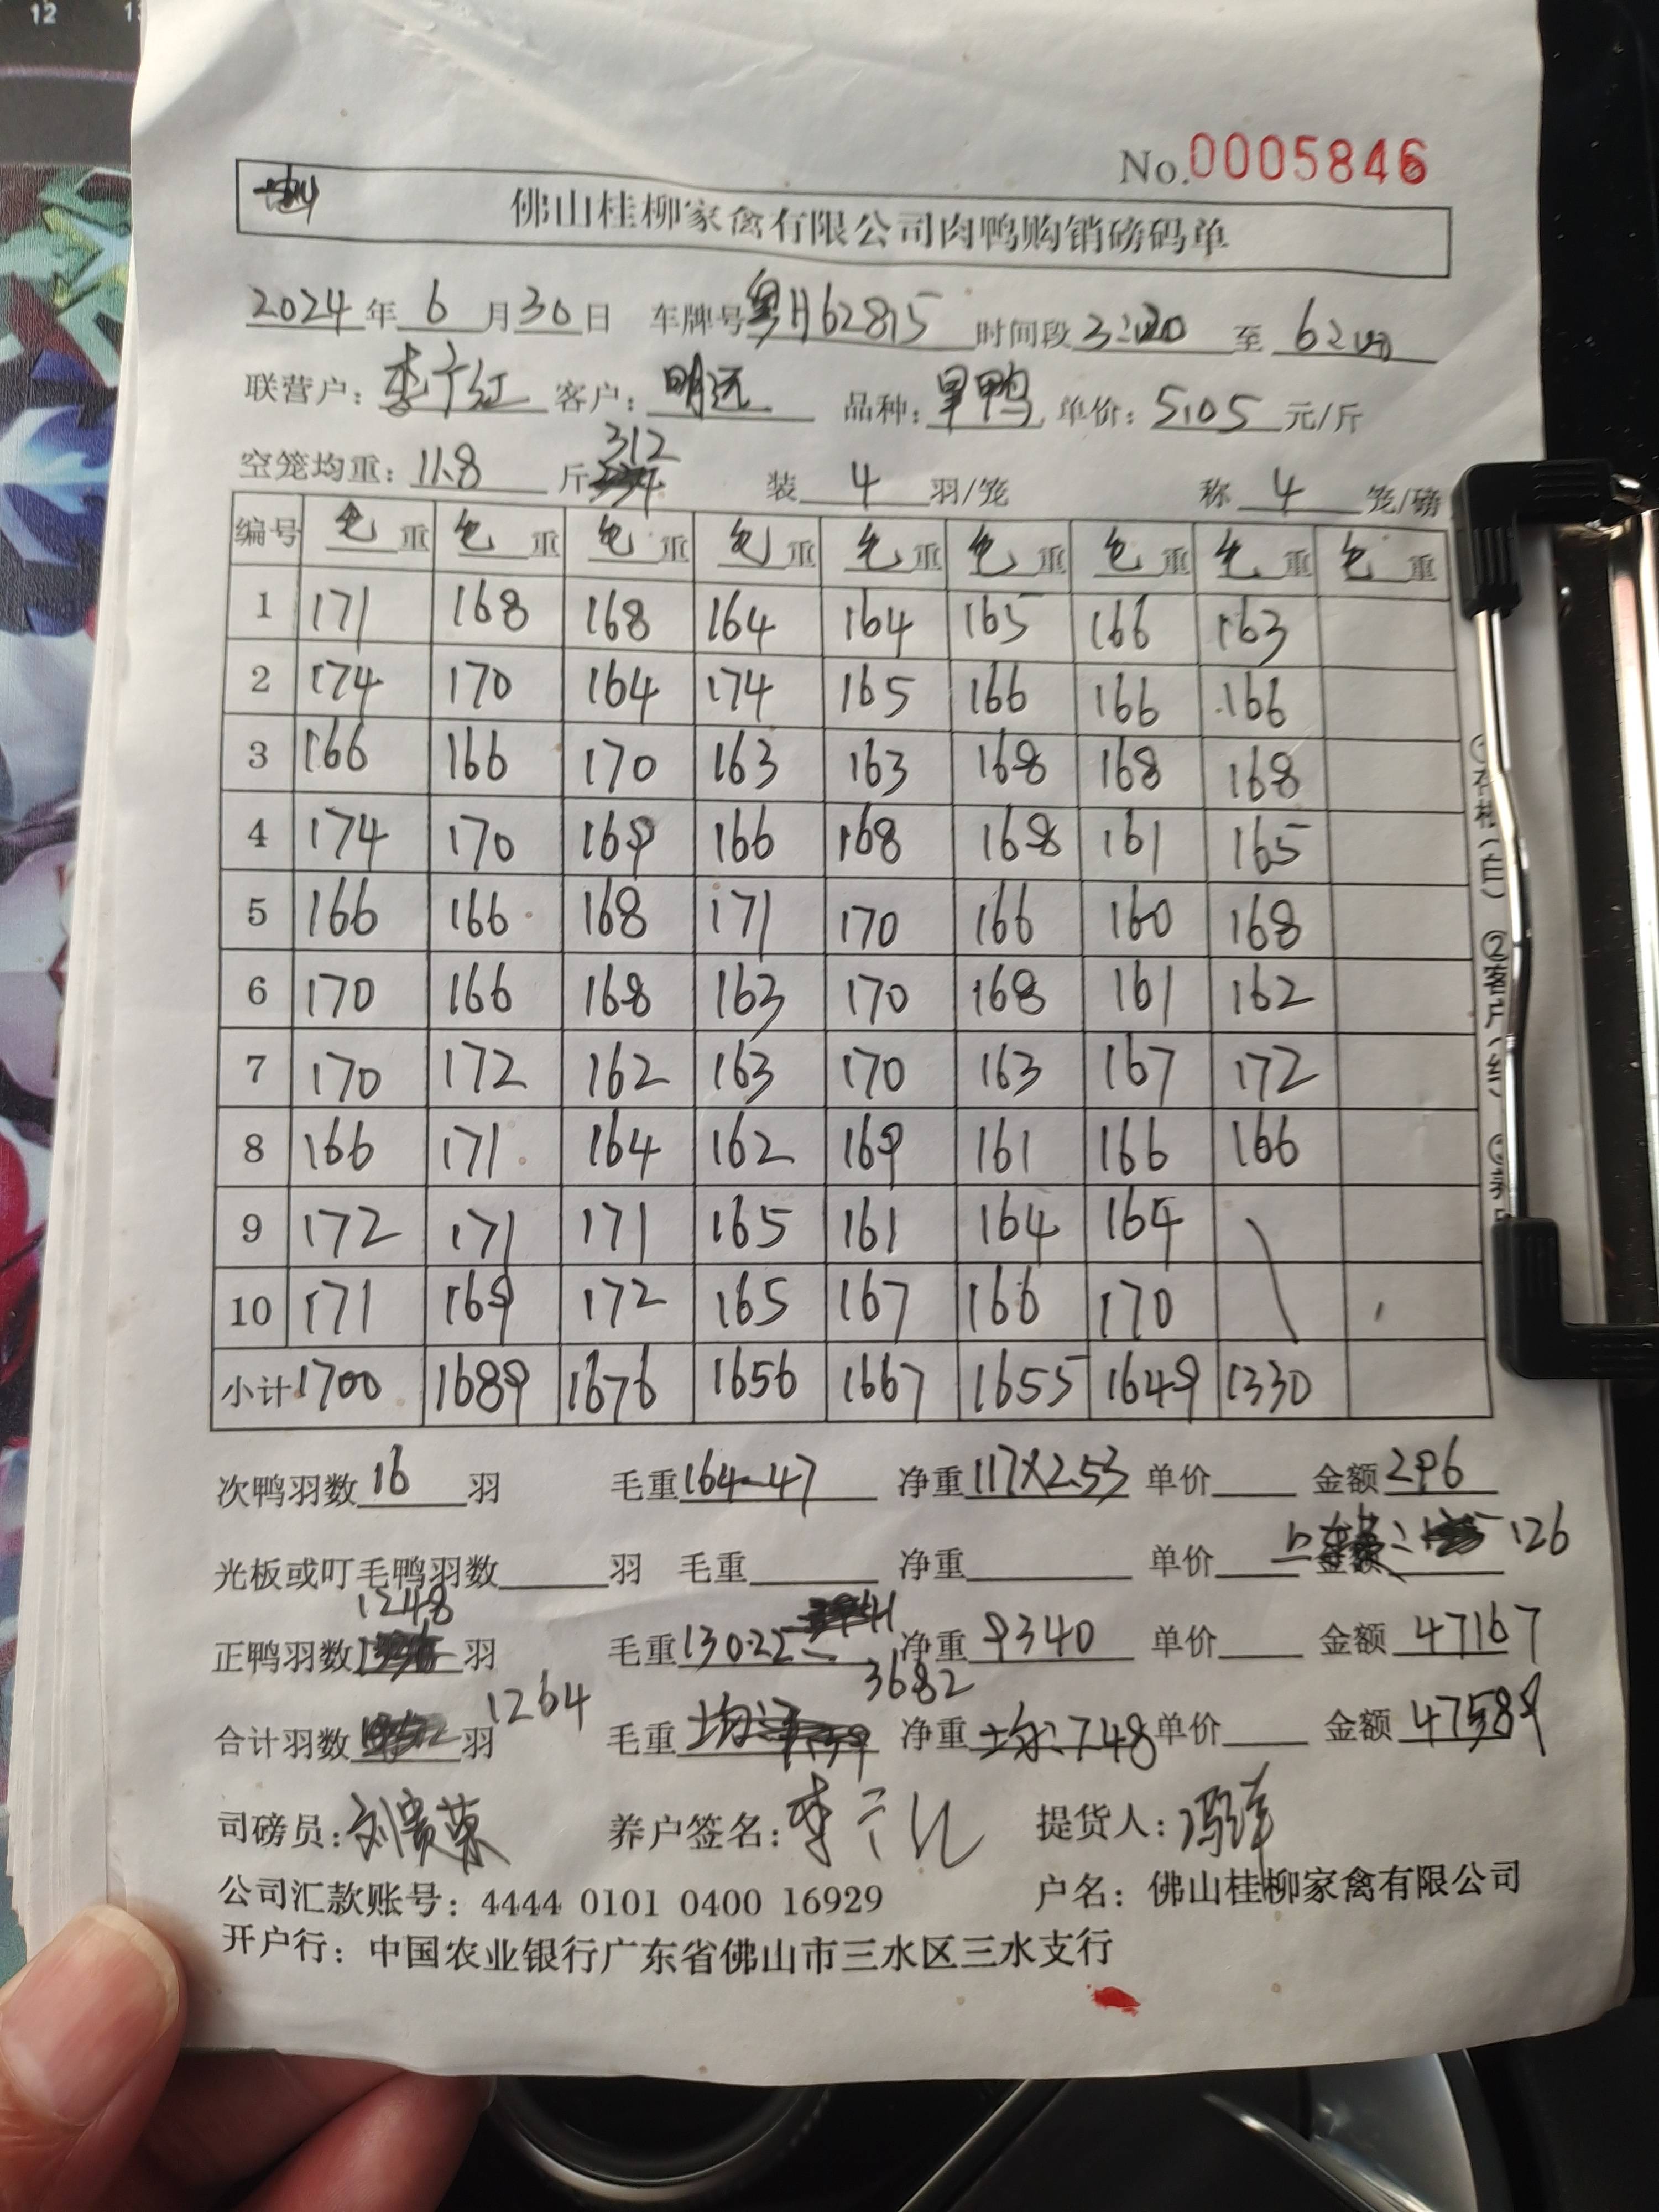 12 13
No.0005846
佛山桂柳家禽有限公司肉鸭购销磅码单
2024年6月30日 车牌号粤H62815 时间段3:20 至
联营户：李于红 客户：明远 品种：旱鸭 单价：5.05元/斤
312
空笼均重：11.8斤 装4羽/笼 称4笼/磅
编号 毛重 毛重 毛重 毛重 毛重 毛重 毛重 毛重 毛重
1 171 168 168 164 164 165 166 163
2 174 170 164 174 165 166 166 166
3 166 166 170 163 163 168 168 168
4 174 170 169 166 168 168 161 165
5 166 166 168 171 170 166 160 168
6 170 166 168 163 170 168 161 162
7 170 172 162 163 170 163 167 172
8 166 171 164 162 169 161 166 166
9 172 171 171 165 161 164 164
10 171 169 172 165 167 166 170
小计 1700 1689 1676 1656 1667 1655 1649 1330
次鸭羽数16羽 毛重164-47 净重117×2.53 单价 金额296
光板或叮毛鸭羽数 羽 毛重 净重 单价 126
1248
正鸭羽数 羽 毛重13022- 净重9340 单价 金额47167
3682
合计羽数 羽 1264 毛重均: 净重均:7.48 单价 金额47589
司磅员：刘贵荣 养户签名：李于红 提货人：
公司汇款账号：4444 0101 0400 16929 户名：佛山桂柳家禽有限公司
开户行：中国农业银行广东省佛山市三水区三水支行